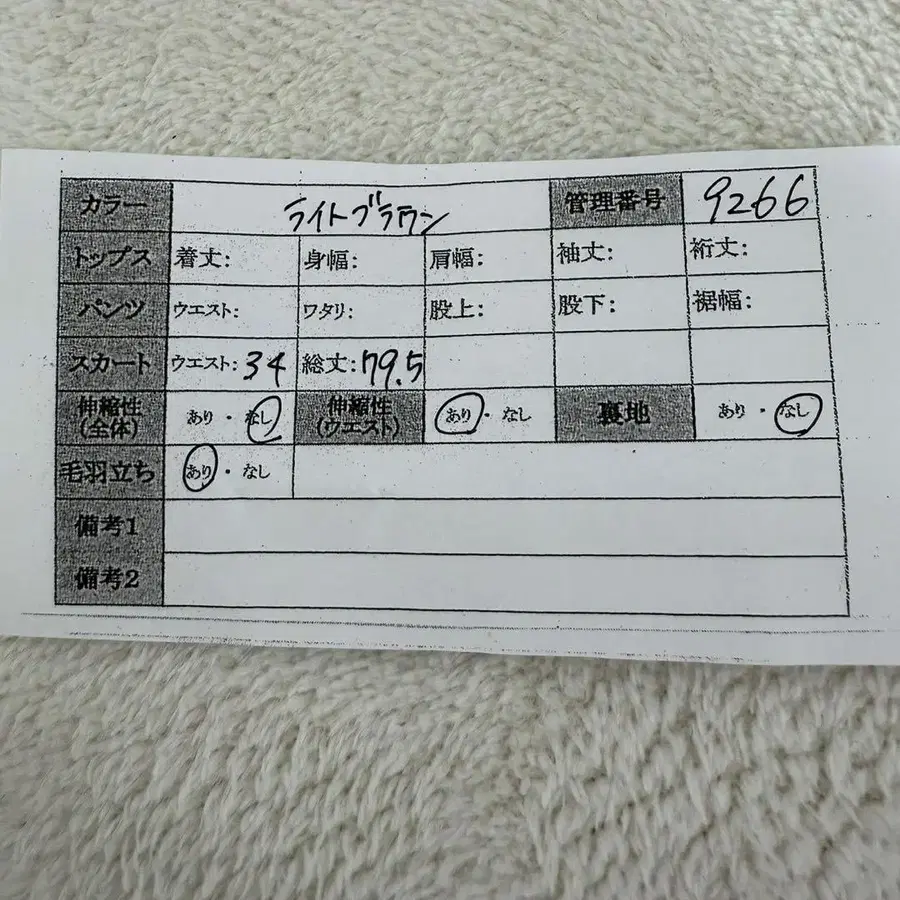 カラー ライトブラウン 管理番号 9266
トップス 着丈: 身幅: 肩幅: 袖丈: 裄丈:
パンツ ウエスト: ワタリ: 股上: 股下: 裾幅:
スカート ウエスト: 34 総丈: 79.5
伸縮性(全体) あり・なし 伸縮性(ウエスト) あり・なし 裏地 あり・なし
毛羽立ち あり・なし
備考1
備考2